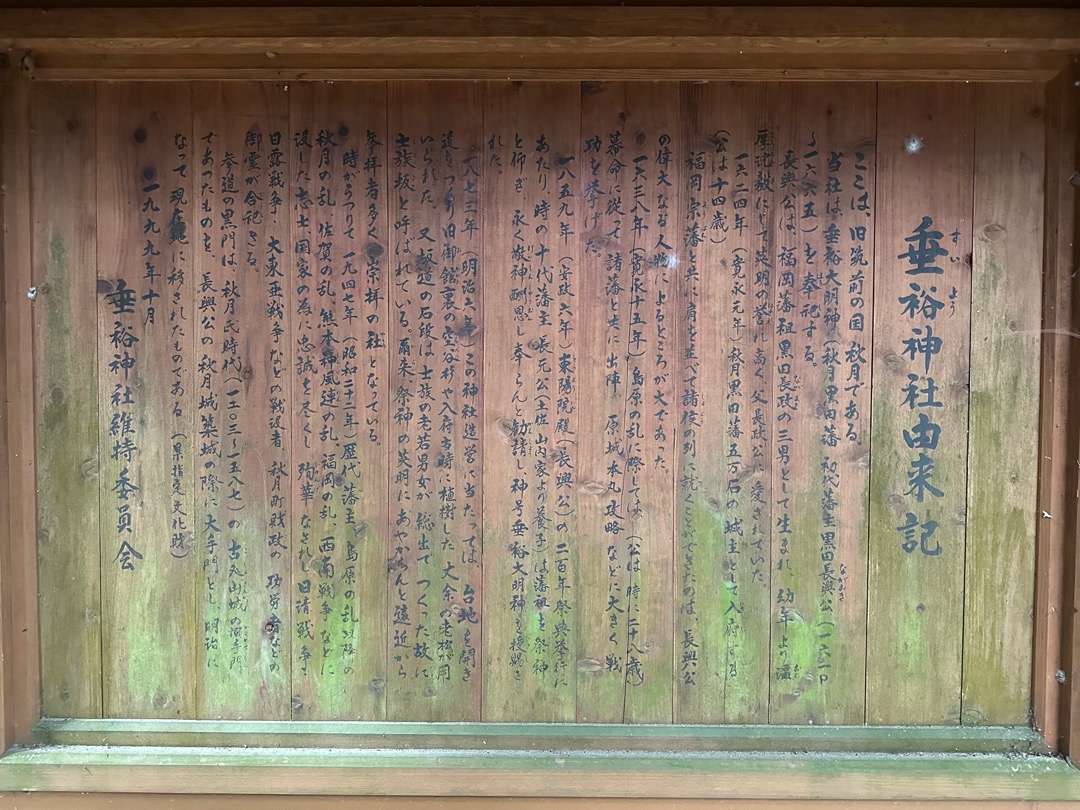 垂裕神社由来記
すい よう
ここは、旧筑前の国 秋月である。
当社は、垂裕大明神（秋月黒田藩 初代藩主黒田長興公（一六一〇
～一六六五）を奉祀する。
ながおき
長興公は、福岡藩祖黒田長政の三男として生まれ、幼年より温
厚沈毅にして英明の誉れ高く、父長政公に愛されていた。
一六二四年（寛永元年）秋月黒田藩五万石の城主として入府する
（公は十四歳）
福岡宗藩と共に肩を並べて諸侯の列に就くことができたのは、長興公
の偉大なる人物によるところが大であった。
一六三八年（寛永十五年）島原の乱に際しては（公は時に二十八歳）
幕命に従って諸藩と共に出陣、原城本丸攻略などに大きく戦
功を挙げた。
一八五九年（安政六年）東陽院殿（長興公）の二百年祭典挙行に
あたり、時の十代藩主長元公（土佐山内家より養子）は藩祖を祭神
と仰ぎ、永く敬神酬恩し奉らんと勧請し、神号垂裕大明神を授賜さ
れた。
一八七三年（明治六年）この神社造営に当たっては、台地を開き
道をつくり旧御館裏の空谷杉や入府古時に植樹した大余の老松が用
いられた。又、坂道の石段は士族の老若男女が総出でつくった故に
士族坂と呼ばれている。爾来、祭神の英明にあやからんと遠近から
参拝者多く崇拝の社となっている。
時がうつって一九四七年（昭和二十二年）歴代藩主、島原の乱以降の
秋月の乱、佐賀の乱、熊本神風連の乱、福岡の乱、西南戦争などに
没した志士国家の為に忠誠を尽くし 殉華 なされし日清戦争
日露戦争、大東亜戦争などの戦没者 秋月町財政の 功労者などの
御霊が合祀さる。
参道の黒門は、秋月氏時代（一二〇三～一五八七）の古処山城の搦手門
であったものを、長興公の秋月城築城の際に大手門とし、明治に
なって現在地に移されたものである（県指定文化財）
一九九九年十月
垂裕神社維持委員会